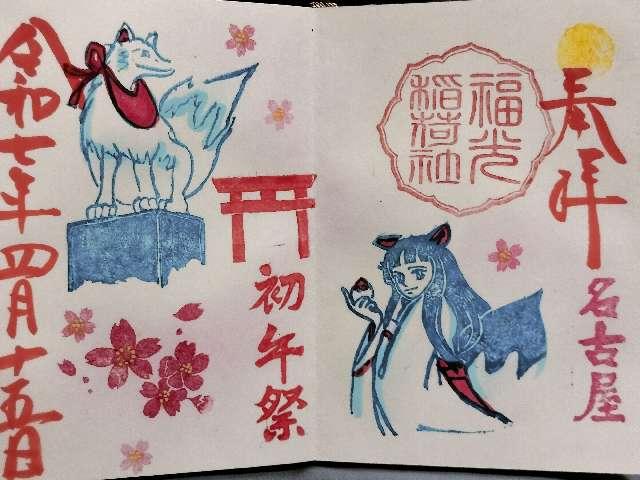 奉拝
福光
稲荷社
名古屋
初午祭
令和七年四月十五日